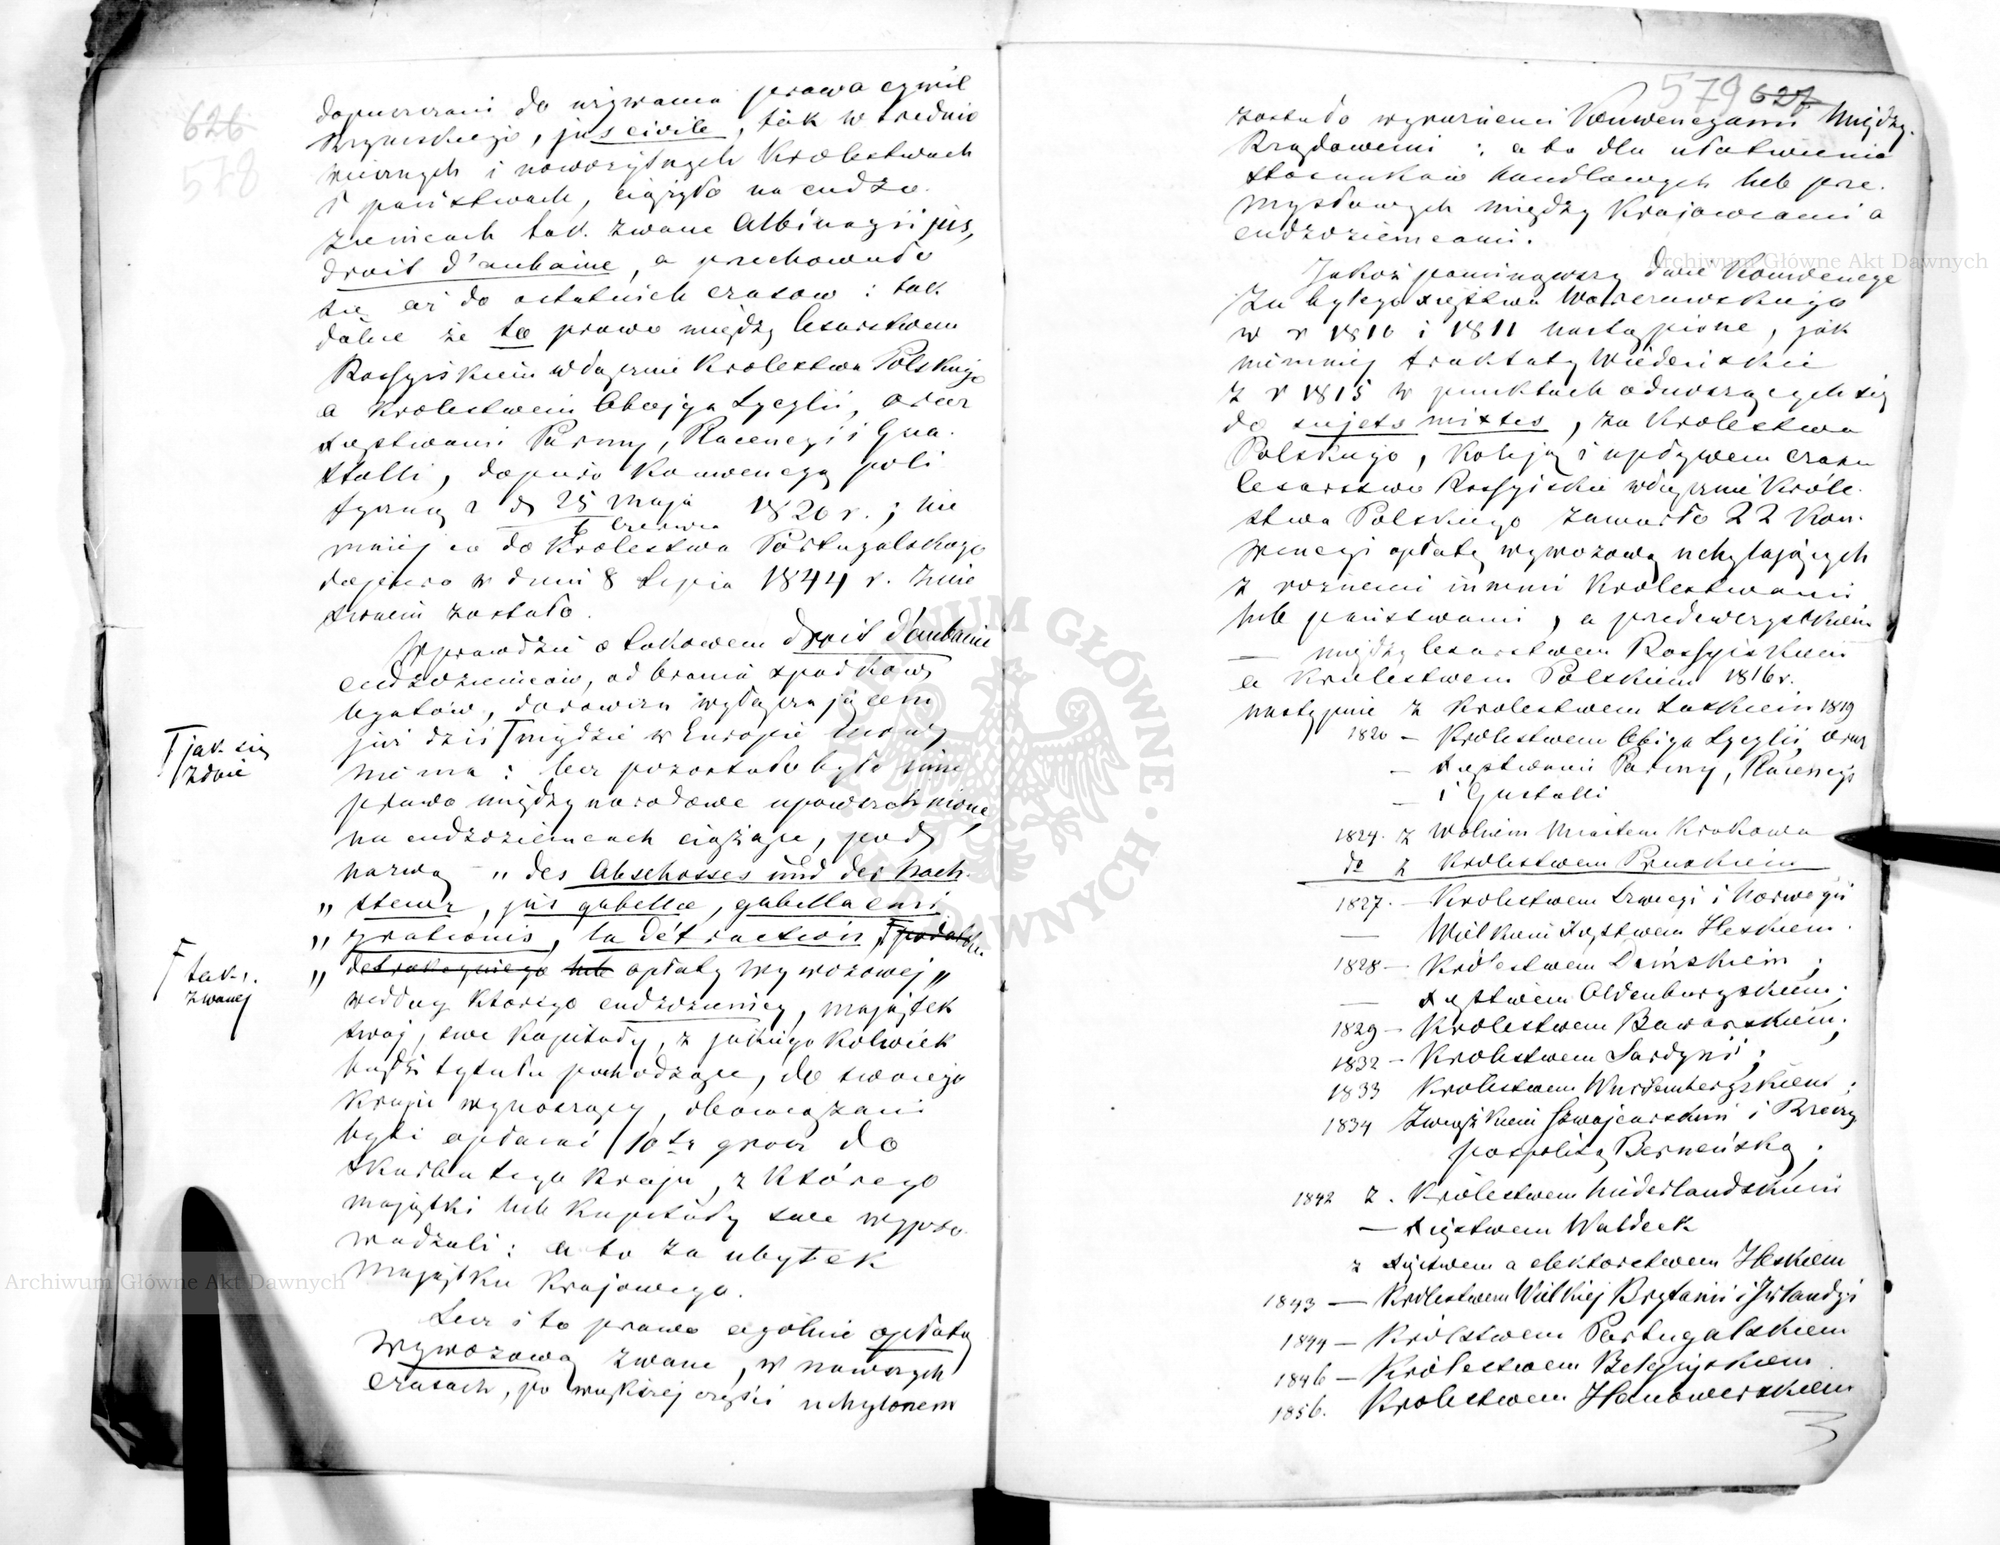 626
578
dopuszczani do używania prawa cywil
Rzymskiego, jus civile, tak w średnio
wiecznych i nowożytnych Królestwach
i państwach, ciążyło na cudzo-
ziemcach tak zwane Albinagii jus,
droit d'aubaine, a przechowało
się aż do ostatnich czasów : tak
dalece że to prawo między Cesarstwem
Rossyiskiem włącznie Królestwa Polskiego
a Królestwem Obojga Sycylii, oraz
Xięstwami Parmy, Placencyi i Gua-
stalli, dopiéro Konwencyą poli
tyczną z d. 25 Maja 1820 r. ; nie
6 Czerwca
mniej co do Królestwa Portugalskiego
dopiero w dniu 8 Lipca 1844 r. znie
sionem zostało.
Wprawdzie o takowem droit d'aubaine
cudzoziemców, od brania spadków,
legatów, darowizn wyłączającem
już dziś ⌈nigdzie w Europie mowy
⌈jak się
zdaje
nie ma : lecz pozostało było inne
prawo międzynarodowe upowszechnione,
na cudzoziemcach ciążące, pod
nazwą – „ des Abschosses und der Nach-
„ steuer, jus gabellae, gabella emi
„ grationis, la détraction, ⌈podatku
„ detrakcyinego lub opłaty wywozowej „
⌈tak
zwanej
według którego cudzoziemcy, majątek
swój, swe kapitały, z jakiegokolwiek
bądź tytułu pochodzące, do swojego
kraju wynoszący, obowiązani
byli opłacać 10ty grosz do
skarbu tego kraju, z którego
majątki lub kapitały swe wypro-
wadzali : a to za ubytek
majątku krajowego.
Lecz i to prawo ogólnie opłatą
wywozową zwane, w nowszych
czasach, po większej części uchylonem
579 627
zostało wyraźnemi Konwencyami Między-
Rządowemi : a to dla ułatwienia
stosunków handlowych lub prze-
mysłowych między Krajowcami a
cudzoziemcami.
Jakoż pominąwszy dwie Konwencye
za byłego Xięstwa Warszawskiego
w r 1810 i 1811 nastąpione, jak
niemniej traktaty Wiedeńskie
z r 1815 w punktach odnoszących się
do sujets mixtes, za Królestwa
Polskiego, koleją i upływem czasu
Cesarstwo Rossyiskie włącznie Króle-
stwa Polskiego zawarło 22 Kon-
wencyi opłatę wywozową uchylających
z różnemi innemi Królestwami
lub państwami, a przedewszystkiem
— między Cesarstwem Rossyiskiem
a Królestwem Polskiem 1816 r.
następnie z Królestwem Saskiem 1819
1820 – Królestwem Obojga Sycylii, oraz
– Xięstwami Parmy, Placencyi
– i Gustalli
1824. z Wolnem Miastem Krakowa
do z Królestwem Pruskiem
1827. – Królestwem Szwecyi i Norwegii
— Wielkiem Xięstwem Heskiem.
1828 – Królestwem Duńskiem ;
— Xięstwem Oldenburgskiem ;
1829 – Królestwem Bawarskiem ;
1832 – Królestwem Sardynii ;
1833 Królestwem Wurtembergskiem ;
1834 Związkiem Szwajcarskim i Rzecząpospolitą Berneńską ;
1842 z. Królestwem Niderlandskiem
— Xięstwem Waldeck
z Xięstwem a elektorstwem Heskiem
1843 — Królestwem Wielkiej Brytanii i Irlandyi
1844 – Królestwem Portugalskiem
1846 – Królestwem Belgijskiem
1856. Królestwem Hanowerskiem